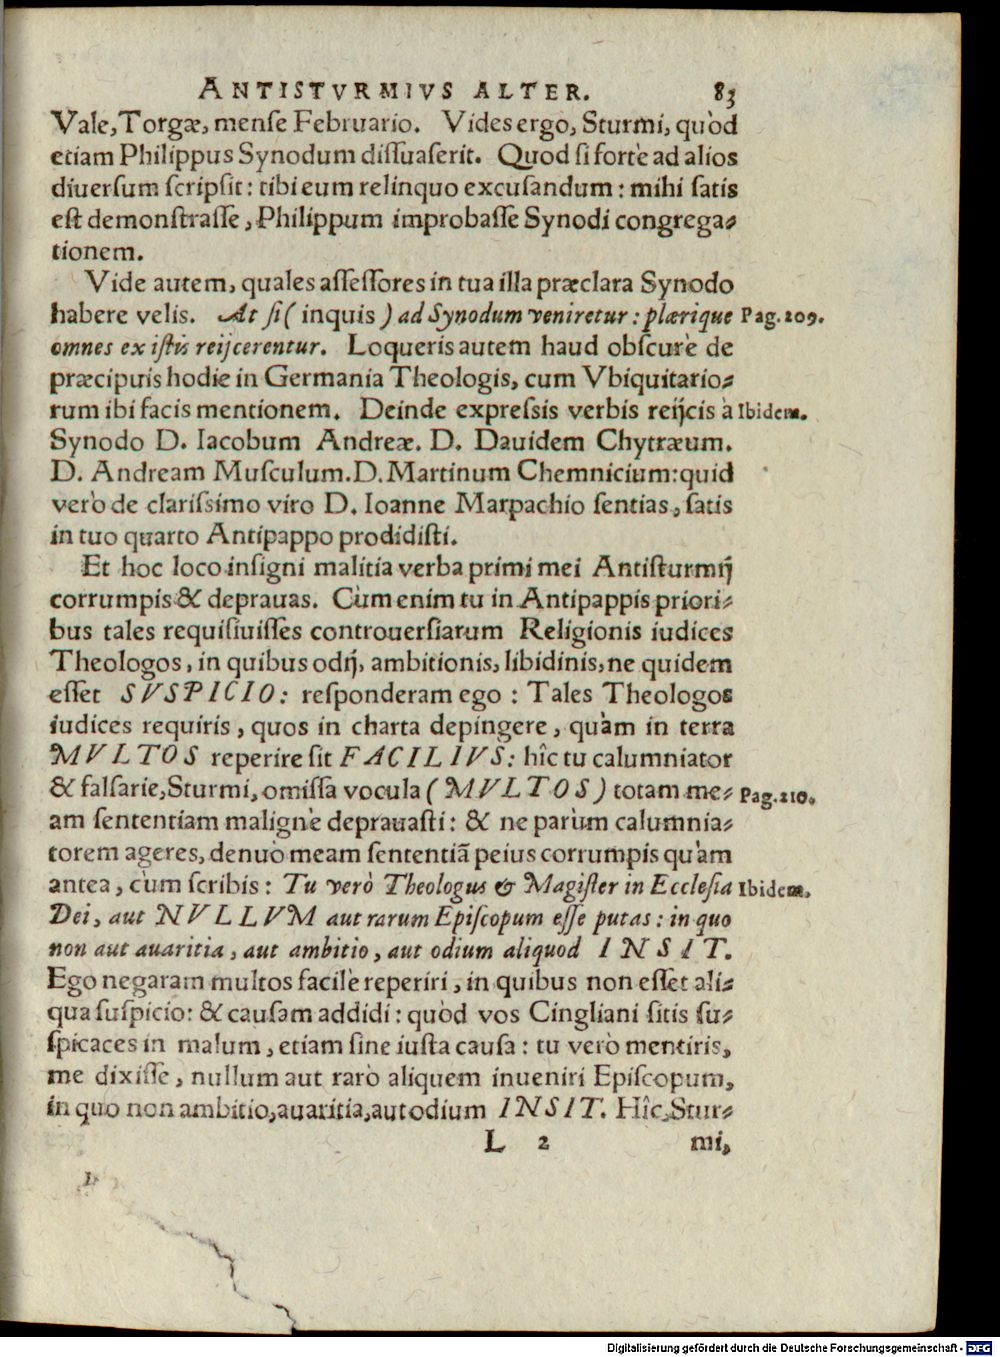 ANTISTVRMIVS ALTER. 83
Vale, Torgæ, menſe Februario. Vides ergo, Sturmi, quòd
etiam Philippus Synodum diſſuaſerit. Quod ſi fortè ad alios
diuerſum ſcripſit: tibi eum relinquo excuſandum: mihi ſatis
eſt demonſtraſſe, Philippum improbaſſe Synodi congrega-
tionem.
Vide autem, quales aſſeſſores in tua illa præclara Synodo
habere velis. At ſi (inquis) ad Synodum veniretur: plærique Pag. 209.
omnes ex iſtis reijcerentur. Loqueris autem haud obſcurè de
præcipuis hodie in Germania Theologis, cum Vbiquitario-
rum ibi facis mentionem. Deinde expreſsis verbis reijcis à Ibidem.
Synodo D. Iacobum Andreæ. D. Dauidem Chytræum.
D. Andream Muſculum. D. Martinum Chemnicium: quid
verò de clariſsimo viro D. Ioanne Marpachio ſentias, ſatis
in tuo quarto Antipappo prodidiſti.
Et hoc loco inſigni malitia verba primi mei Antiſturmij
corrumpis & deprauas. Cùm enim tu in Antipappis priori-
bus tales requiſiuiſſes controuerſiarum Religionis iudices
Theologos, in quibus odij, ambitionis, libidinis, ne quidem
eſſet SVSPICIO: reſponderam ego: Tales Theologos
iudices requiris, quos in charta depingere, quàm in terra
MVLTOS reperire ſit FACILIVS: hîc tu calumniator
& falſarie, Sturmi, omiſſa vocula (MVLTOS) totam me- Pag. 210.
am ſententiam malignè deprauaſti: & ne parùm calumnia-
torem ageres, denuò meam ſententiã peius corrumpis quàm
antea, cùm ſcribis: Tu verò Theologus & Magiſter in Eccleſia Ibidem.
Dei, aut NVLLVM aut rarum Epiſcopum eſſe putas: in quo
non aut auaritia, aut ambitio, aut odium aliquod INSIT.
Ego negaram multos facilè reperiri, in quibus non eſſet ali-
qua ſuſpicio: & cauſam addidi: quòd vos Cingliani ſitis ſu-
ſpicaces in malum, etiam ſine iuſta cauſa: tu verò mentiris,
me dixiſſe, nullum aut rarò aliquem inueniri Epiſcopum,
in quo non ambitio, auaritia, aut odium INSIT. Hîc, Stur-
L 2 mi,
Digitalisierung gefördert durch die Deutsche Forschungsgemeinschaft - DFG